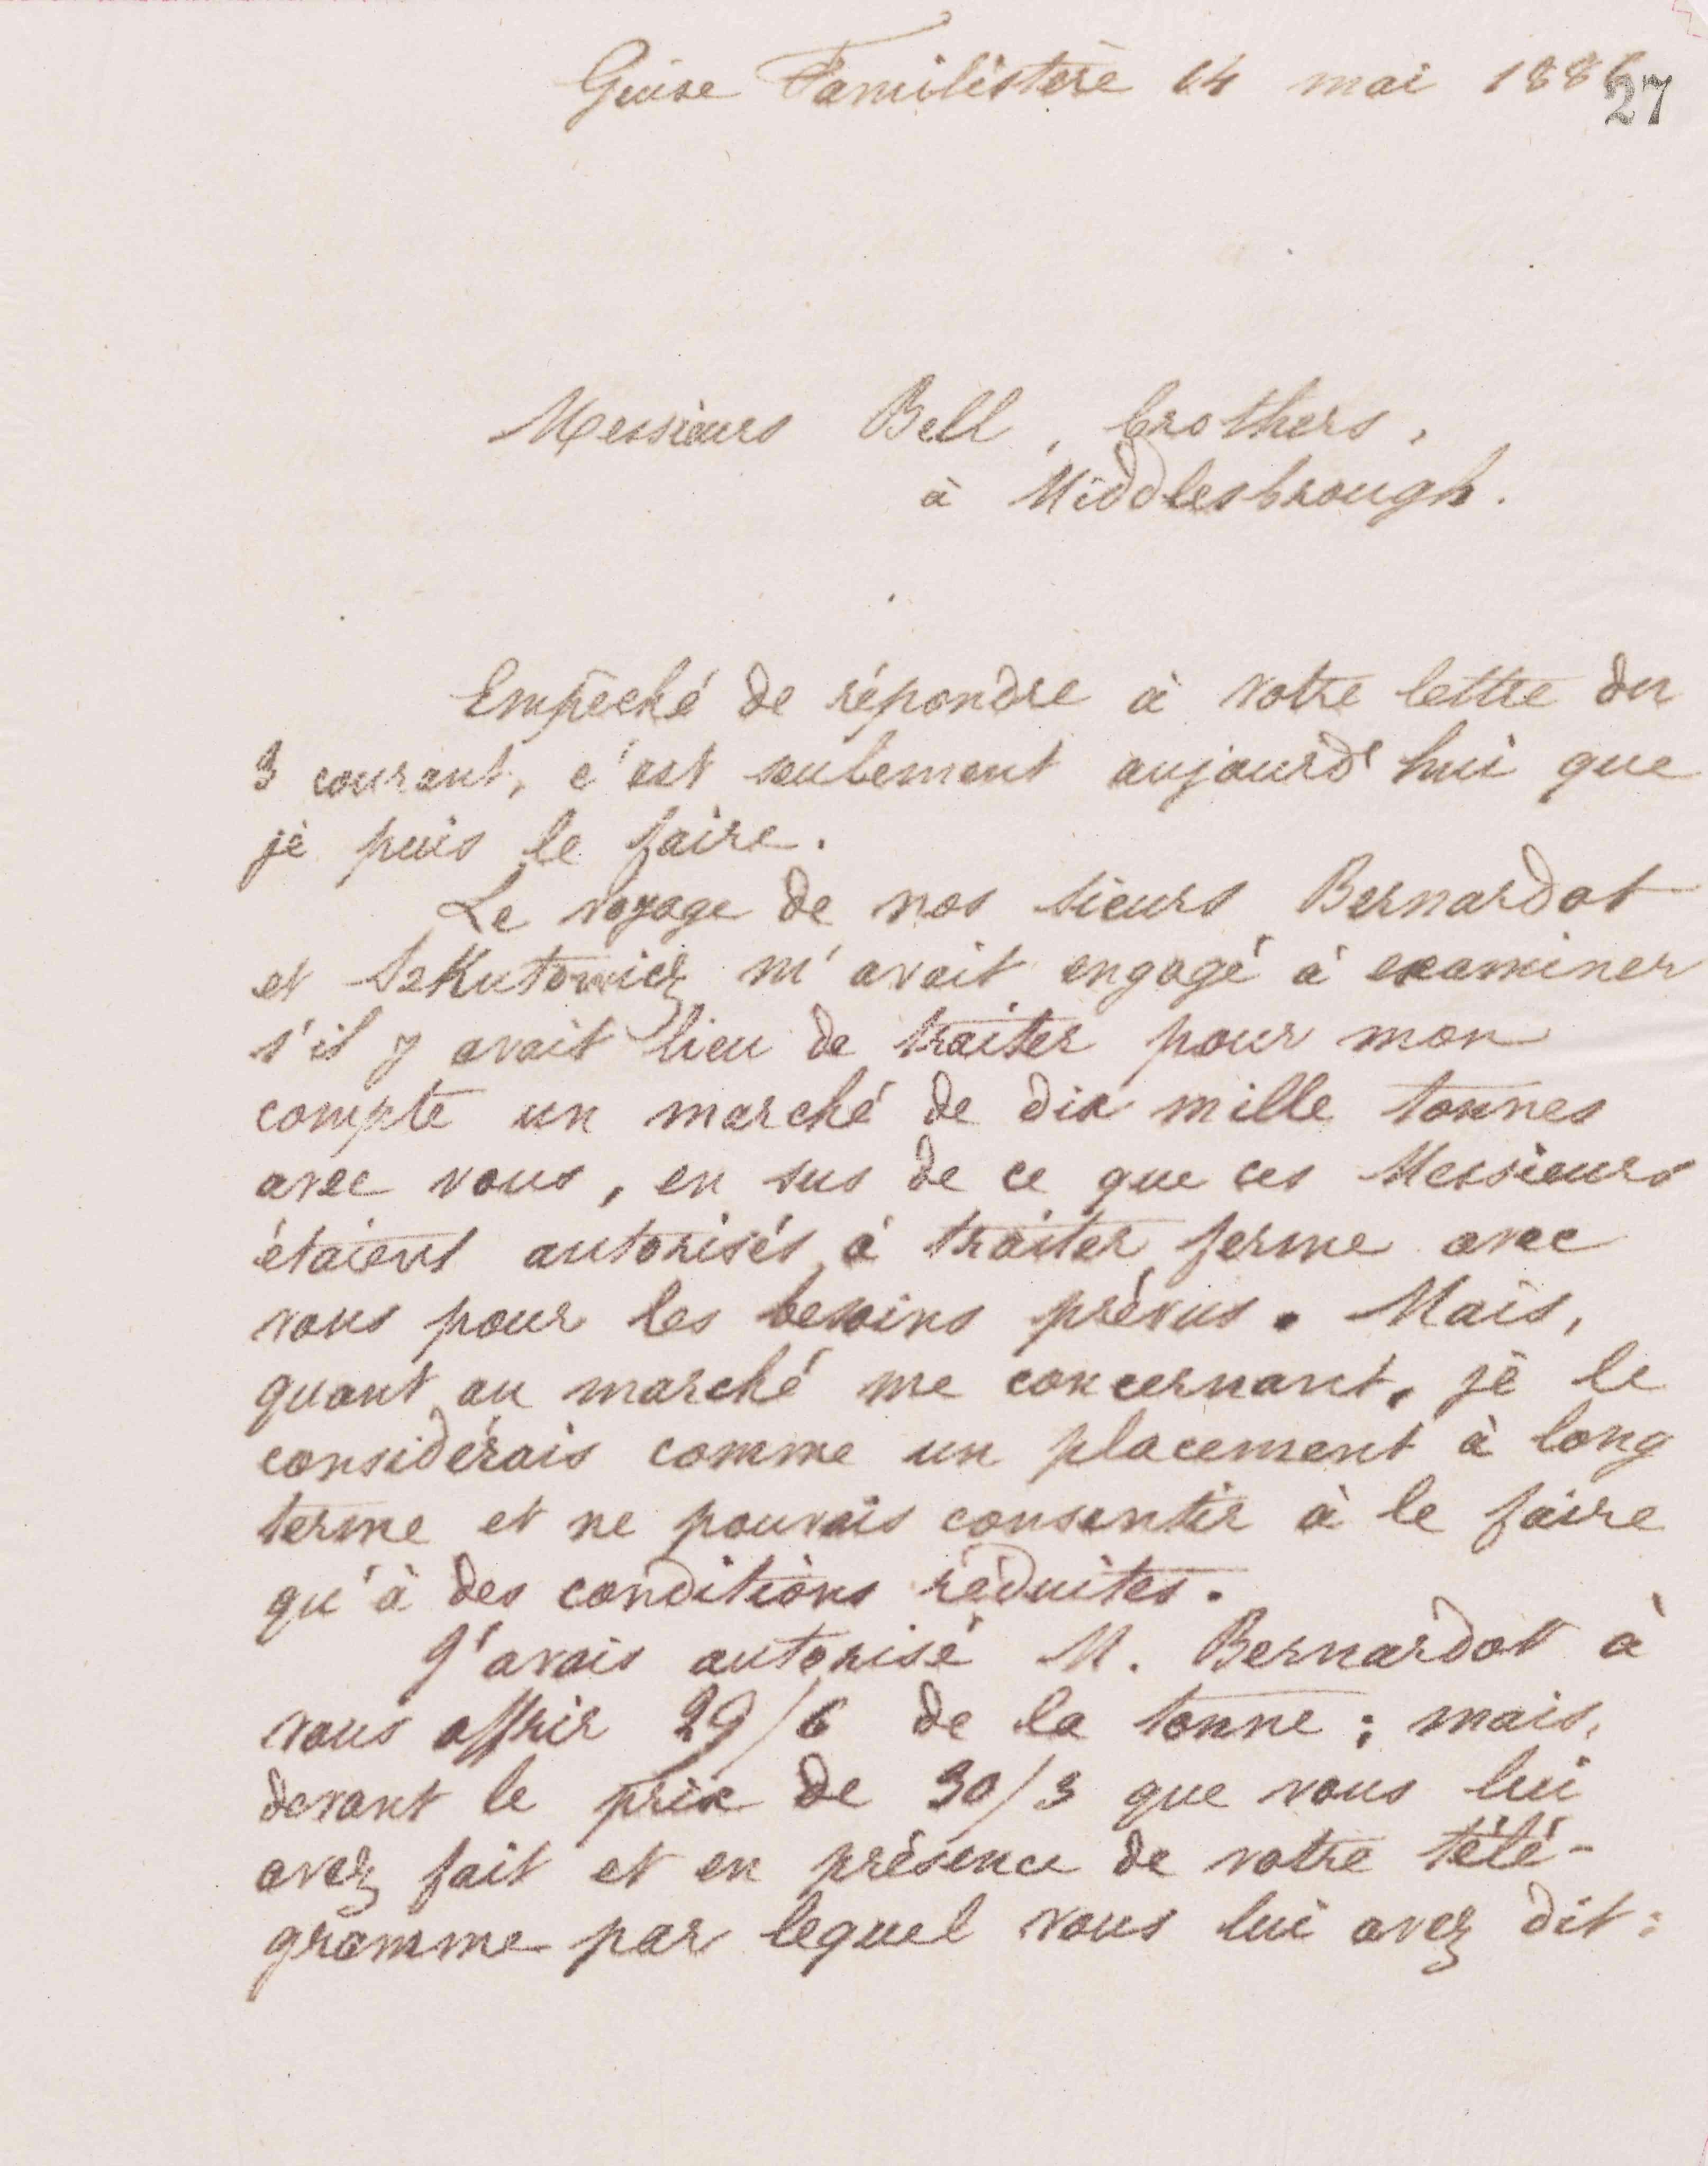 Guise Familistère 14 mai 1886
27
Messieurs Bell, brothers,
à Middlesbrough.
Empêché de répondre à votre lettre du
3 courant, c'est seulement aujourd'hui que
je puis le faire.
Le voyage de nos sieurs Bernardot
et Szkutowicz m'avait engagé à examiner
s'il y avait lieu de traiter pour mon
compte un marché de dix mille tonnes
avec vous, en sus de ce que ces Messieurs
étaient autorisés à traiter ferme avec
vous pour les besoins prévus. Mais,
quant au marché me concernant, je le
considérais comme un placement à long
terme et ne pouvais consentir à le faire
qu'à des conditions réduites.
J'avais autorisé M. Bernardot à
vous offrir 29/6 de la tonne ; mais,
devant le prix de 30/3 que vous lui
avez fait et en présence de votre télé-
gramme par lequel vous lui avez dit :